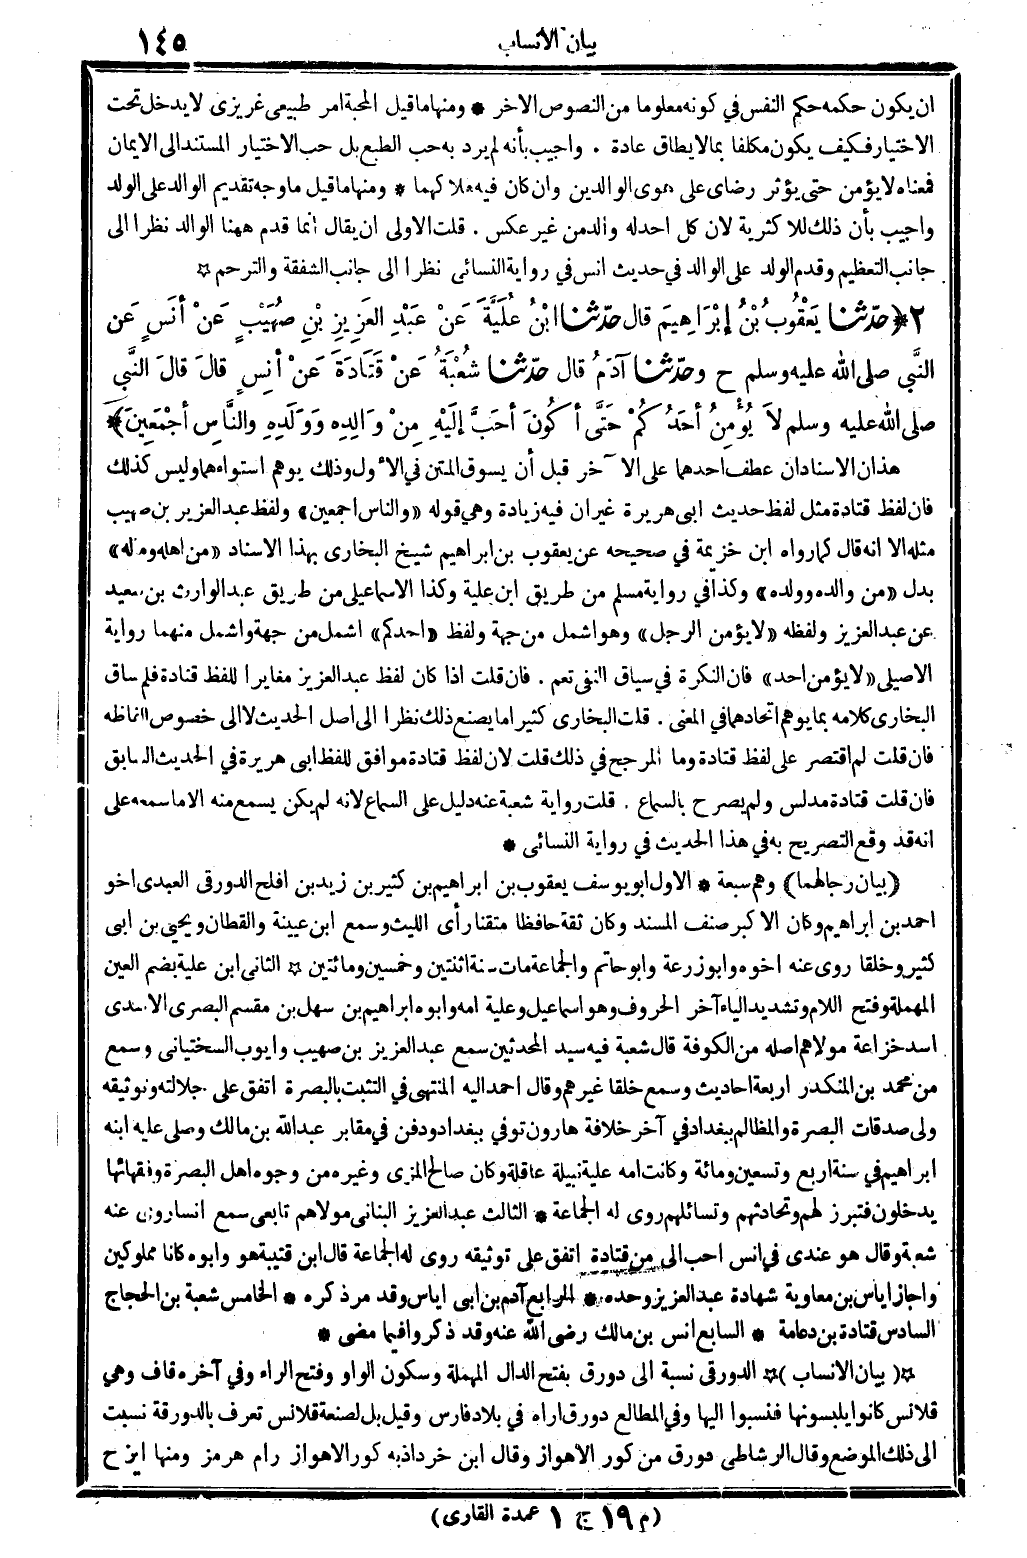 بيان الأنساب
١٤٥
ان يكون حكمه حكم النفس في كونه معلوما من النصوص الاخر * ومنها ما قيل المحبة امر طبيعى غريزى لا يدخل تحت
الاختيار فكيف يكون مكلفا بما لا يطاق عادة . واجيب بأنه لم يرد به حب الطبع بل حب الاختيار المستند الى الايمان
فمعناه لا يؤمن حتى يؤثر رضاى على هوى الوالدين وان كان فيه هلاكهما * ومنها ما قيل ما وجه تقديم الوالد على الولد
واجيب بأن ذلك للاكثرية لان كل احد له والد من غير عكس . قلت الاولى ان يقال انما قدم ههنا الوالد نظرا الى
جانب التعظيم وقدم الولد على الوالد في حديث انس في رواية النسائى نظرا الى جانب الشفقة والترحم ☆
٢ * ( حدّثنا يَعْقُوبُ بْنُ إِبْرَاهِيمَ قال حدّثنا ابْنُ عُلَيَّةَ عَنْ عَبْدِ العَزِيزِ بْنِ صُهَيْبٍ عَنْ أَنَسٍ عَنِ
النَّبي صلى الله عليه وسلم ح وحدّثنا آدَمُ قال حدّثنا شُعْبَةُ عَنْ قَتَادَةَ عَنْ أَنسٍ قالَ قالَ النَّبي
صلى الله عليه وسلم لاَ يُؤْمِنُ أَحَدُكُمْ حَتَّى أَكُونَ أَحَبَّ إلَيْهِ مِنْ وَالِدِهِ وَوَلَدِهِ والنَّاسِ أَجْمَعِينَ ) *
هذان الاسنادان عطف احدهما على الآخر قبل أن يسوق المتن في الأول وذلك يوهم استواءهما وليس كذلك
فان لفظ قتادة مثل لفظ حديث ابى هريرة غير ان فيه زيادة وهي قوله «والناس اجمعين» ولفظ عبد العزيز بن صهيب
مثله الا انه قال كما رواه ابن خزيمة في صحيحه عن يعقوب بن ابراهيم شيخ البخارى بهذا الاسناد «من اهله وماله»
بدل «من والده وولده» وكذا في رواية مسلم من طريق ابن علية وكذا الاسماعيلى من طريق عبد الوارث بن سعيد
عن عبد العزيز ولفظه «لا يؤمن الرجل» وهو اشمل من جهة ولفظ «احدكم» اشمل من جهة واشمل منهما رواية
الاصيلى «لا يؤمن احد» فان النكرة في سياق النفى تعم . فان قلت اذا كان لفظ عبد العزيز مغايرا للفظ قتادة فلم ساق
البخارى كلامه بما يوهم اتحادهما في المعنى . قلت البخارى كثيرا ما يصنع ذلك نظرا الى اصل الحديث لا الى خصوص الفاظه
فان قلت لم اقتصر على لفظ قتادة وما المرجح في ذلك قلت لان لفظ قتادة موافق للفظ ابى هريرة في الحديث السابق
فان قلت قتادة مدلس ولم يصرح بالسماع . قلت رواية شعبة عنه دليل على السماع لانه لم يكن يسمع منه الا ما سمعه على
انه قد وقع التصريح به في هذا الحديث في رواية النسائى *
( بيان رجالهما ) وهم سبعة * الاول ابو يوسف يعقوب بن ابراهيم بن كثير بن زيد بن افلح الدورقى العبدى اخو
احمد بن ابراهيم وكان الاكبر صنف المسند وكان ثقة حافظا متقنا رأى الليث وسمع ابن عيينة والقطان ويحيى بن ابى
كثير وخلقا روى عنه اخوه وابو زرعة وابو حاتم والجماعة مات سنة اثنتين وخمسين ومائتين ☆ الثانى ابن علية بضم العين
المهملة وفتح اللام وتشديد الياء آخر الحروف وهو اسماعيل وعلية امه وابوه ابراهيم بن سهل بن مقسم البصرى الاسدى
اسد خزاعة مولاهم اصله من الكوفة قال شعبة فيه سيد المحدثين سمع عبد العزيز بن صهيب وايوب السختيانى وسمع
من محمد بن المنكدر اربعة احاديث وسمع خلقا غيرهم وقال احمد اليه المنتهى في التثبت بالبصرة اتفق على جلالته وتوثيقه
ولى صدقات البصرة والمظالم ببغداد في آخر خلافة هارون توفي ببغداد ودفن في مقابر عبد الله بن مالك وصلى عليه ابنه
ابراهيم في سنة اربع وتسعين ومائة وكانت امه علية نبيلة عاقلة وكان صالح المزى وغيره من وجوه اهل البصرة وفقهائها
يدخلون فتبرز لهم وتحادثهم وتسائلهم روى له الجماعة * الثالث عبد العزيز البنانى مولاهم تابعى سمع انسا روى عنه
شعبة وقال هو عندى في انس احب الى من قتادة اتفق على توثيقه روى له الجماعة قال ابن قتيبة هو وابوه كانا مملوكين
واجاز اياس بن معاوية شهادة عبد العزيز وحده * الرابع آدم بن ابى اياس وقد مر ذكره * الخامس شعبة بن الحجاج
السادس قتادة بن دعامة * السابع انس بن مالك رضى الله عنه وقد ذكروا فيما مضى *
☆( بيان الانساب )☆ الدورقى نسبة الى دورق بفتح الدال المهملة وسكون الواو وفتح الراء وفي آخره قاف وهي
قلانس كانوا يلبسونها فنسبوا اليها وفي المطالع دورق اراه في بلاد فارس وقيل بل لصنعة قلانس تعرف بالدورقة نسبت
الى ذلك الموضع وقال الرشاطى دورق من كور الاهواز وقال ابن خرداذبه كور الاهواز رام هرمز ومنها ايذح
(م ١٩ ج ١ عمدة القارى)